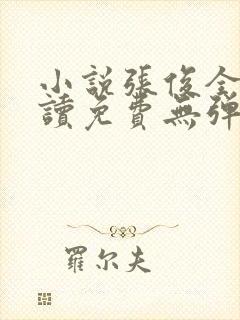 小說張俊全
讀免費無彈
羅尔夫